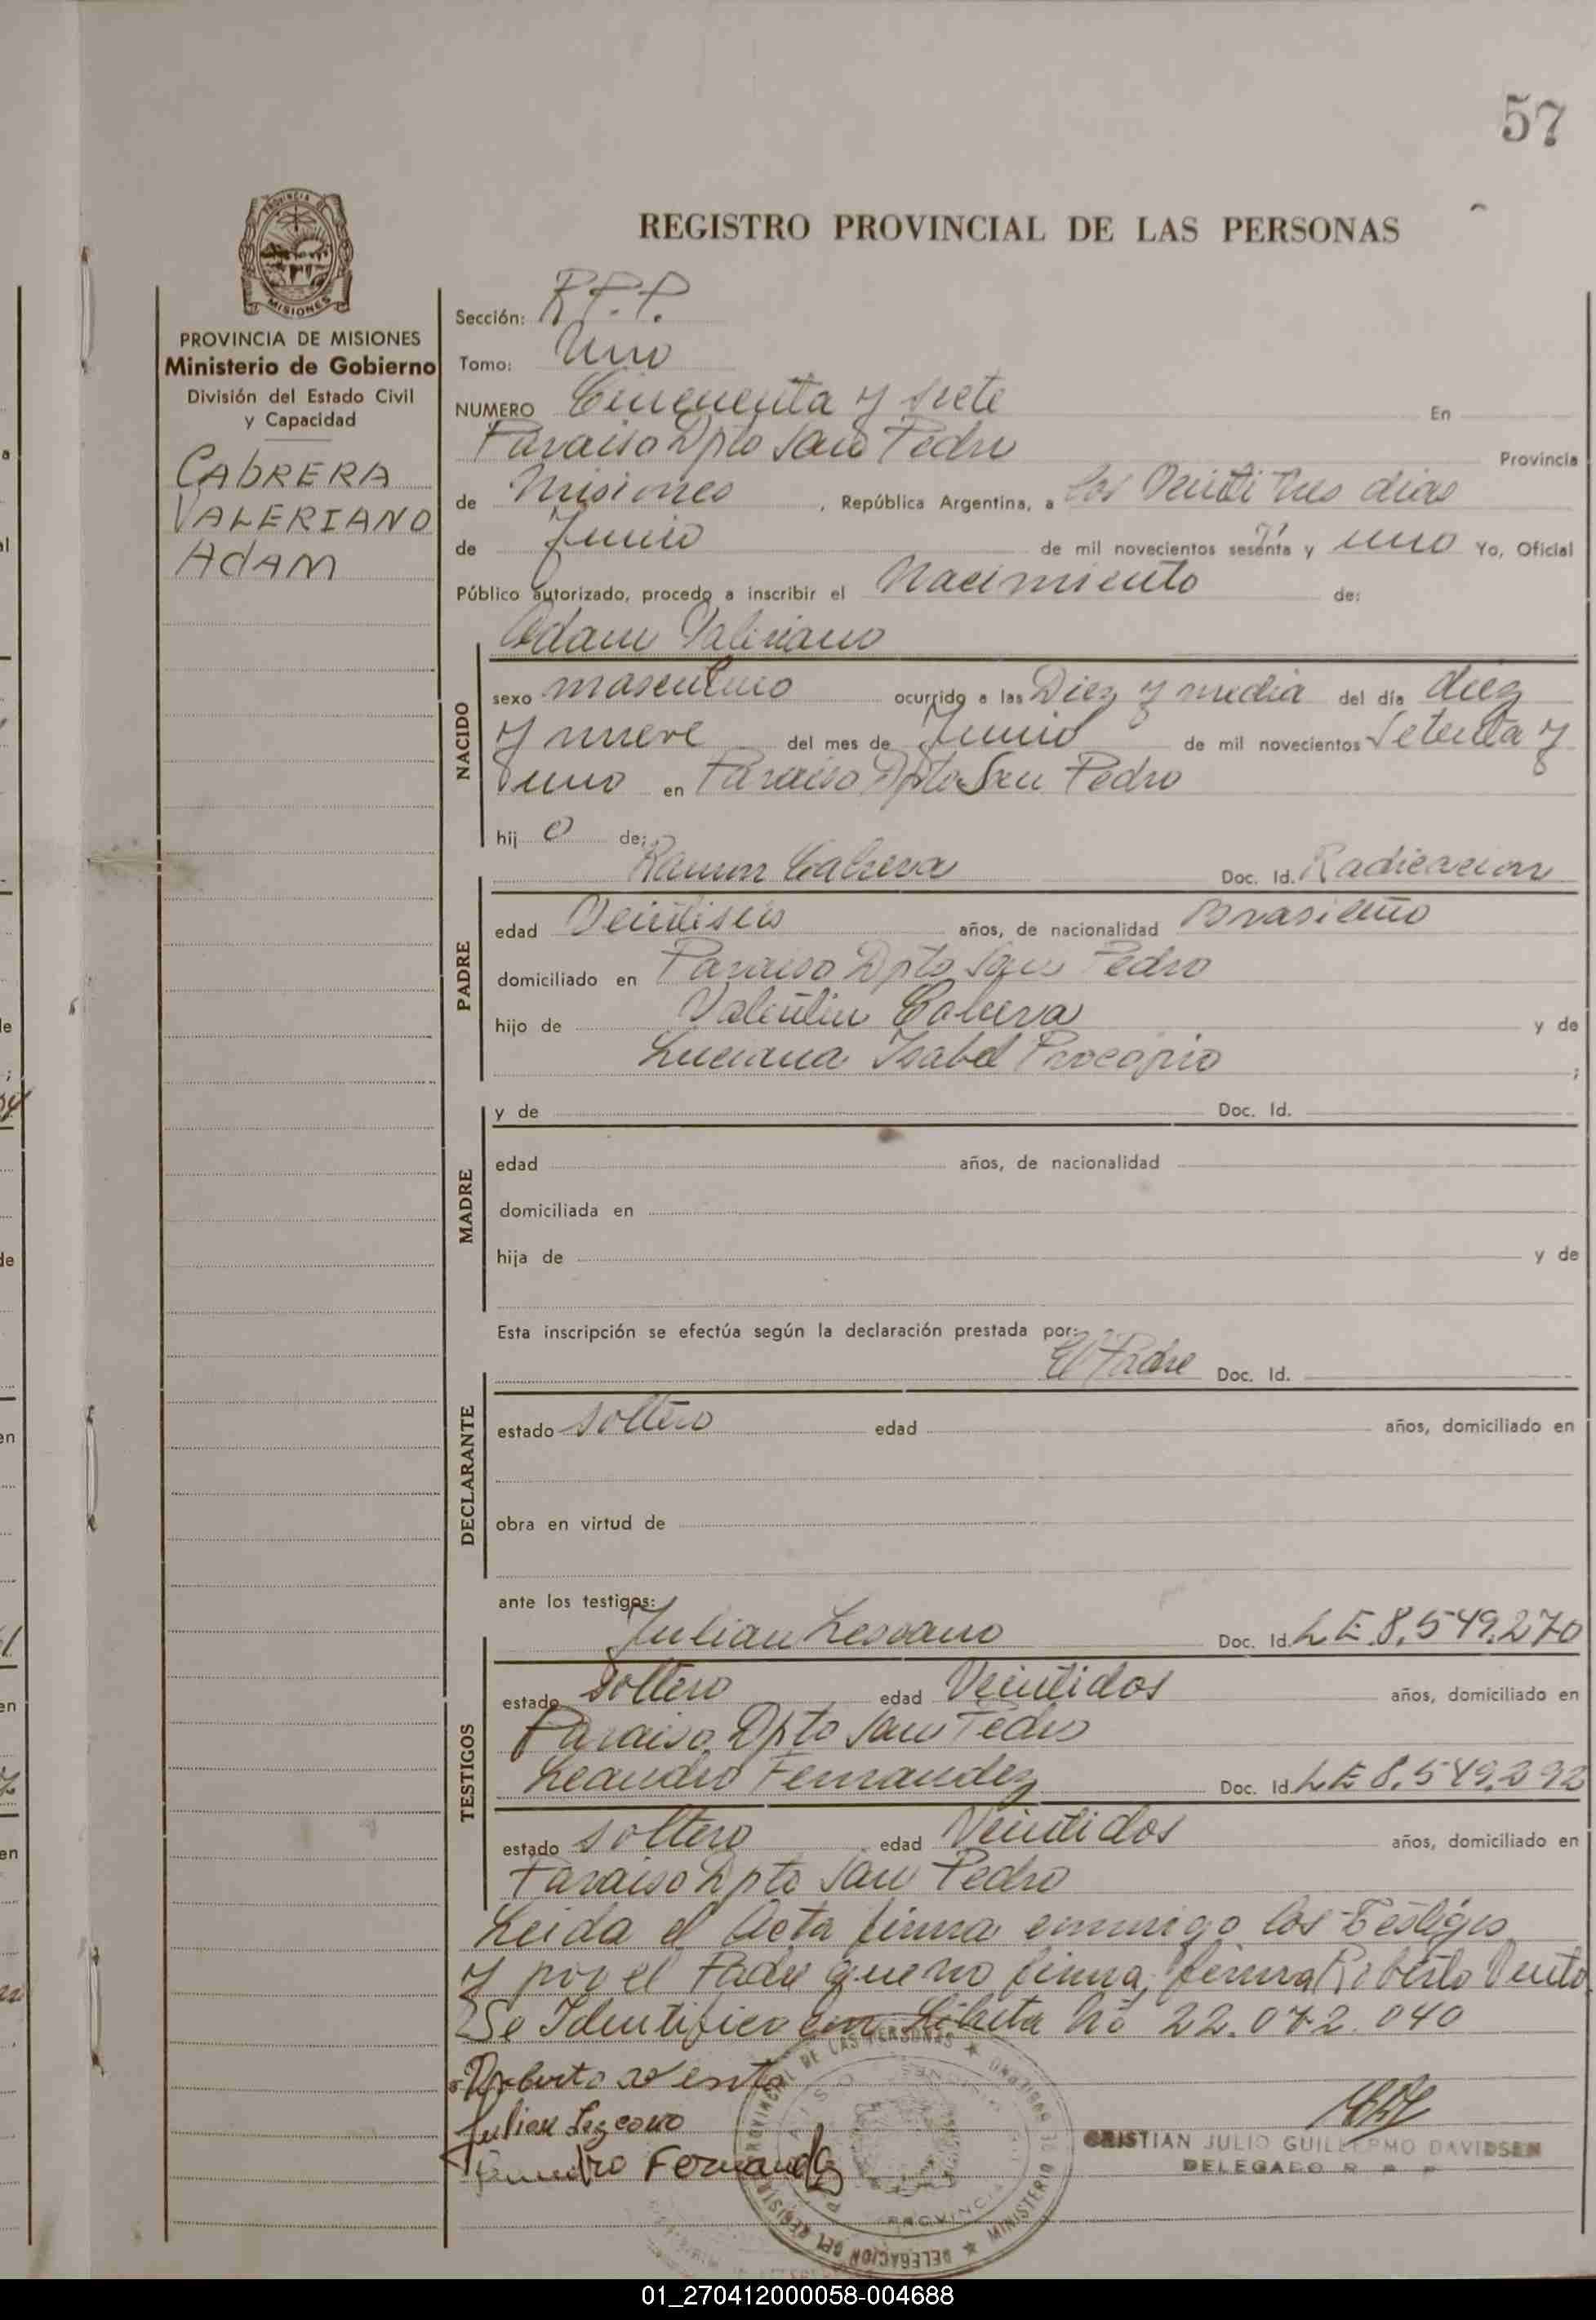 57
REGISTRO PROVINCIAL DE LAS PERSONAS
PROVINCIA DE MISIONES
MISIONES
PROVINCIA DE MISIONES
Ministerio de Gobierno
División del Estado Civil
y Capacidad
CAbRERA
VALERIANO
AdAM
Sección: R.P.P.
Tomo: Uno
NUMERO Cincuenta y siete En
Paraiso Dpto San Pedro Provincia
de Misiones, República Argentina, a los Veinti tres dias
de Junio de mil novecientos sesenta y uno Yo, Oficial
Público autorizado, procedo a inscribir el Nacimiento de:
Adam Valeriano
NACIDO
sexo masculino ocurrido a las Diez y media del día diez
y nueve del mes de Junio de mil novecientos Setenta y
uno en Paraiso Dpto San Pedro
hij o de:
Ramon Cabrera Doc. Id. Radicacion
PADRE
edad Veintiseis años, de nacionalidad Brasileño
domiciliado en Paraiso Dpto San Pedro
hijo de Valentin Cabrera y de
Luciana Isabel Procopio ;
MADRE
y de Doc. Id.
edad años, de nacionalidad
domiciliada en
hija de y de
Esta inscripción se efectúa según la declaración prestada por:
El Padre Doc. Id.
DECLARANTE
estado soltero edad años, domiciliado en
obra en virtud de
ante los testigos:
Julian Lescano Doc. Id. LE 8.549.270
TESTIGOS
estado Soltero edad Veintidos años, domiciliado en
Paraiso Dpto San Pedro
Leandro Fernandez Doc. Id. LE 8.549.292
estado soltero edad Veintidos años, domiciliado en
Paraiso Dpto San Pedro
Leida el Acta firma conmigo los Testigos
y por el Padre que no firma, firma Roberto Vento
Se Identifico con Libreta No 22.072.040
Roberto Vento
Julian Lezcano
Fernandez
CRISTIAN JULIO GUILLERMO DAVIDSEN
DELEGADO R P P
DELEGACION DEL REGISTRO PROVINCIAL DE LAS PERSONAS ★ MINISTERIO DE GOBIERNO ★
01_270412000058-004688